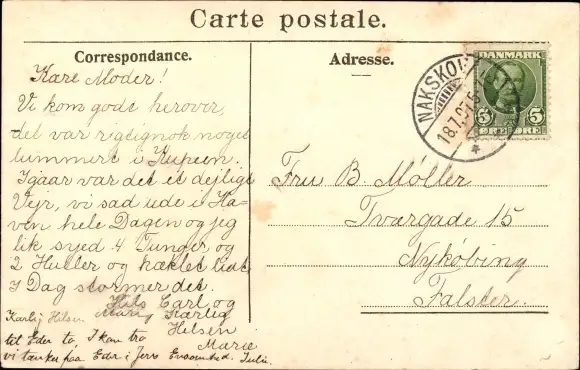 Carte postale.
Correspondance.
Kære Moder!
Vi kom godt herover,
det var rigtignok noget
lummert i Kupeen.
Igaar var det et dejligt
Vejr, vi sad ude i Ha-
ven hele Dagen og jeg
fik syed 4 Tunger og
2 Huller og hæklet lidt,
I Dag stormer det.
Hils Carl og
Kærlig Hilsen
Marie
Kærlig
Hilsen
Marie
til Eder to, I kan tro
vi tænker paa Eder i Jers Ensomhed. Julie.
Adresse.
NAKSKOV
18.7.07.5
DANMARK
5 5
ØRE ØRE
Fru B. Møller
Tværgade 15
Nykøbing
Falster.